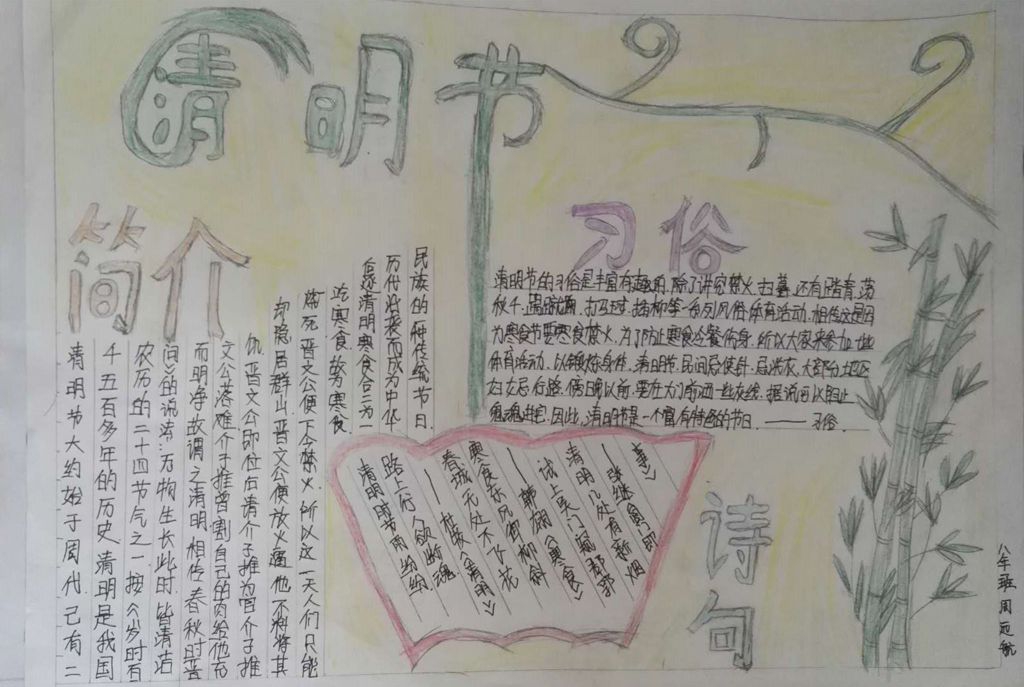 清明节
简介
清明节大约始于周代已有二
千五百多年的历史清明是我国
农历的二十四节气之一按《岁时百
问》的说法:万物生长此时皆清洁
而明净故谓之清明相传春秋时晋
文公落难介子推曾割自己的肉给他充
饥晋文公即位后请介子推为官介子推
却隐居群山晋文公便放火逼他不料将其
烧死晋文公便下令禁火所以这一天人们只能
吃寒食故为寒食
逐清明寒食合二为一
历代沿袭而成为中华
民族的一种传统节日
习俗
清明节的习俗是丰富有趣的,除了讲究禁火,扫墓,还有踏青,荡
秋千,蹴鞠,打马球,插柳等一系列风俗体育活动.相传这是因
为寒食节要寒食禁火,为了防止寒食冷餐伤身,所以大家来参加一些
体育活动,以锻炼身体.清明节,民间忌使针,忌洗衣,大部分地区
妇女忌行路.傍晚以前,要在大门前洒一些灰线,据说可以阻止
鬼魂进宅.因此,清明节是一个富有特色的节日.——习俗
清明时节雨纷纷
路上行人欲断魂
——杜牧《清明》
春城无处不飞花
寒食东风御柳斜
——韩翃《寒食》
试上吴门窥郡郭
清明几处有新烟
——张继《阊门即
事》
诗句
八年班 周 航